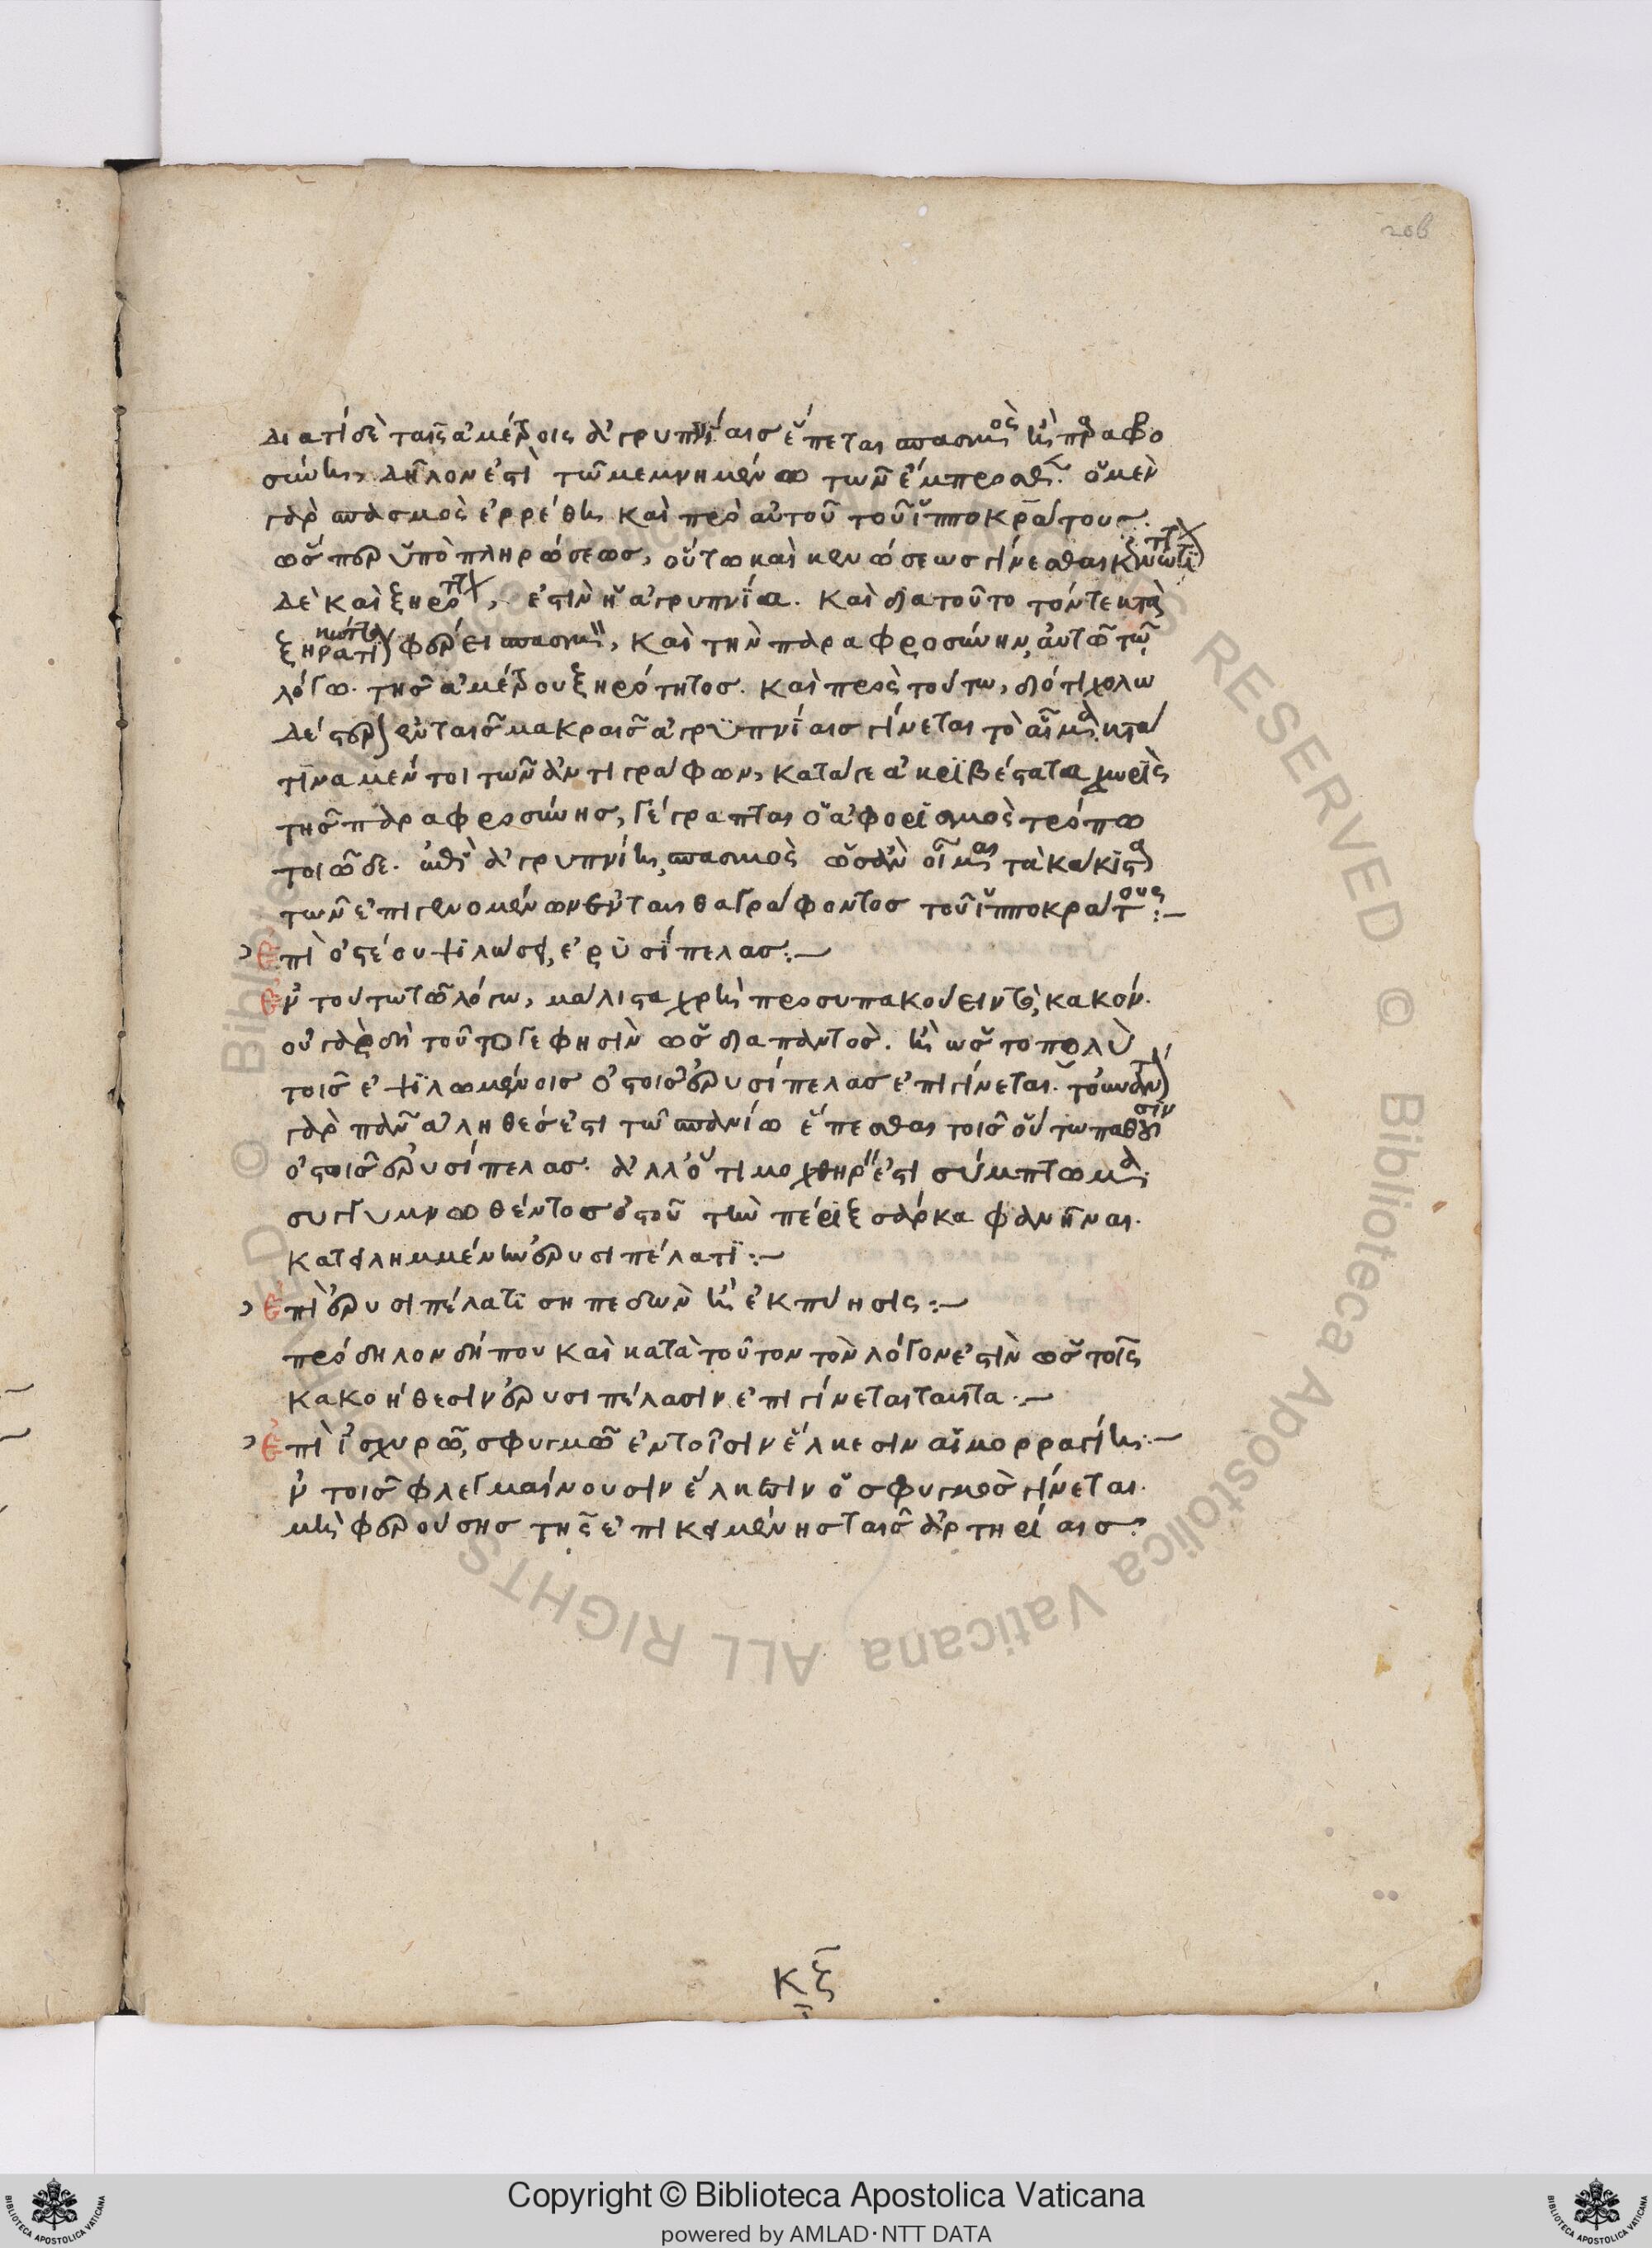 206
διατί δὲ ταῖς ἀμέτροις ἀγρυπνίαις ἕπεται σπασμὸς ἢ παραφρο
σύνη, δῆλον ἐστὶ τῶ μεμνημένω τῶν ἔμπροσθεν. ὁ μὲν
γὰρ σπασμὸς ἐρρέθη καὶ πρὸ αὐτοῦ τοῦ ἱπποκράτους.
ὥσπερ ὑπὸ πληρώσεως, οὕτω καὶ κενώσεως γίνεσθαι κενωτικὴ
δὲ καὶ ξηραντικὴ, ἐστὶν ἡ ἀγρυπνία. καὶ διατοῦτο τόν τε κατὰ
ξηρότητα φέρει σπασμὸν, καὶ τὴν παραφροσύνην, αὐτῶ τῶ
λόγω τῆς ἀμέτρου ξηρότητος. καὶ πρὸς τούτω, διότι χολω
δέστερον ἐν ταῖς μακραῖς ἀγρυπνίαις γίνεται τὸ αἷμα. κατὰ
τινα μέντοι τῶν ἀντιγράφων, κατά γε ἀκριβέστατα χωρὶς
τῆς παραφροσύνης, γέγραπται ὁ ἀφορισμὸς τρόπω
τοιῶδε. ἐπὶ ἀγρυπνίη, σπασμὸς ὡς ἂν οἶμαι τὰ κάκιστα
τῶν ἐπιγενομένων ἐνταῦθα γράφοντος τοῦ ἱπποκράτους :—
Ἐπὶ ὀστέου ψιλώσει, ἐρυσίπελας :—
Ἐν τούτω τῶ λόγω, μάλιστα χρὴ προσυπακούειν τὸ, κακόν.
οὐ γὰρ δὴ τοῦτό γε φησὶν ὡς διαπαντὸς. ἢ ὡς τοπολὺ
τοῖς ἐψιλωμένοις ὀστοῖς ἐρυσίπελας ἐπιγίνεται. τοὐναντίον
γὰρ πᾶν ἀληθές ἐστι τῶ σπανίω ἕπεσθαι τοῖς οὕτω παθοῦσιν
ὀστοῖς ἐρυσίπελας. ἀλλ' ὅτι μοχθηρὸν ἐστὶ σύμπτωμα
συγγυμνωθέντος ὀστοῦ τὴν πέριξ σάρκα φανῆναι.
κατειλημμένην ἐρυσιπέλατι :—
Ἐπὶ ἐρυσιπέλατι σηπεδὼν ἢ ἐκπύησις :—
πρόδηλον δήπου καὶ κατὰ τοῦτον τὸν λόγον ἐστὶν ὡς τοῖς
κακοήθεσιν ἐρυσιπέλασιν ἐπιγίνεται ταῦτα :—
Ἐπὶ ἰσχυρῶ, σφυγμῶ ἐν τοῖσιν ἕλκεσιν αἱμορραγίη :—
ν τοῖς φλεγμαίνουσιν ἕλκεσιν ὁ σφυγμὸς γίνεται.
μὴ φερούσης τῆς ἐπικειμένης ταῖς ἀρτηρίαις
κζ